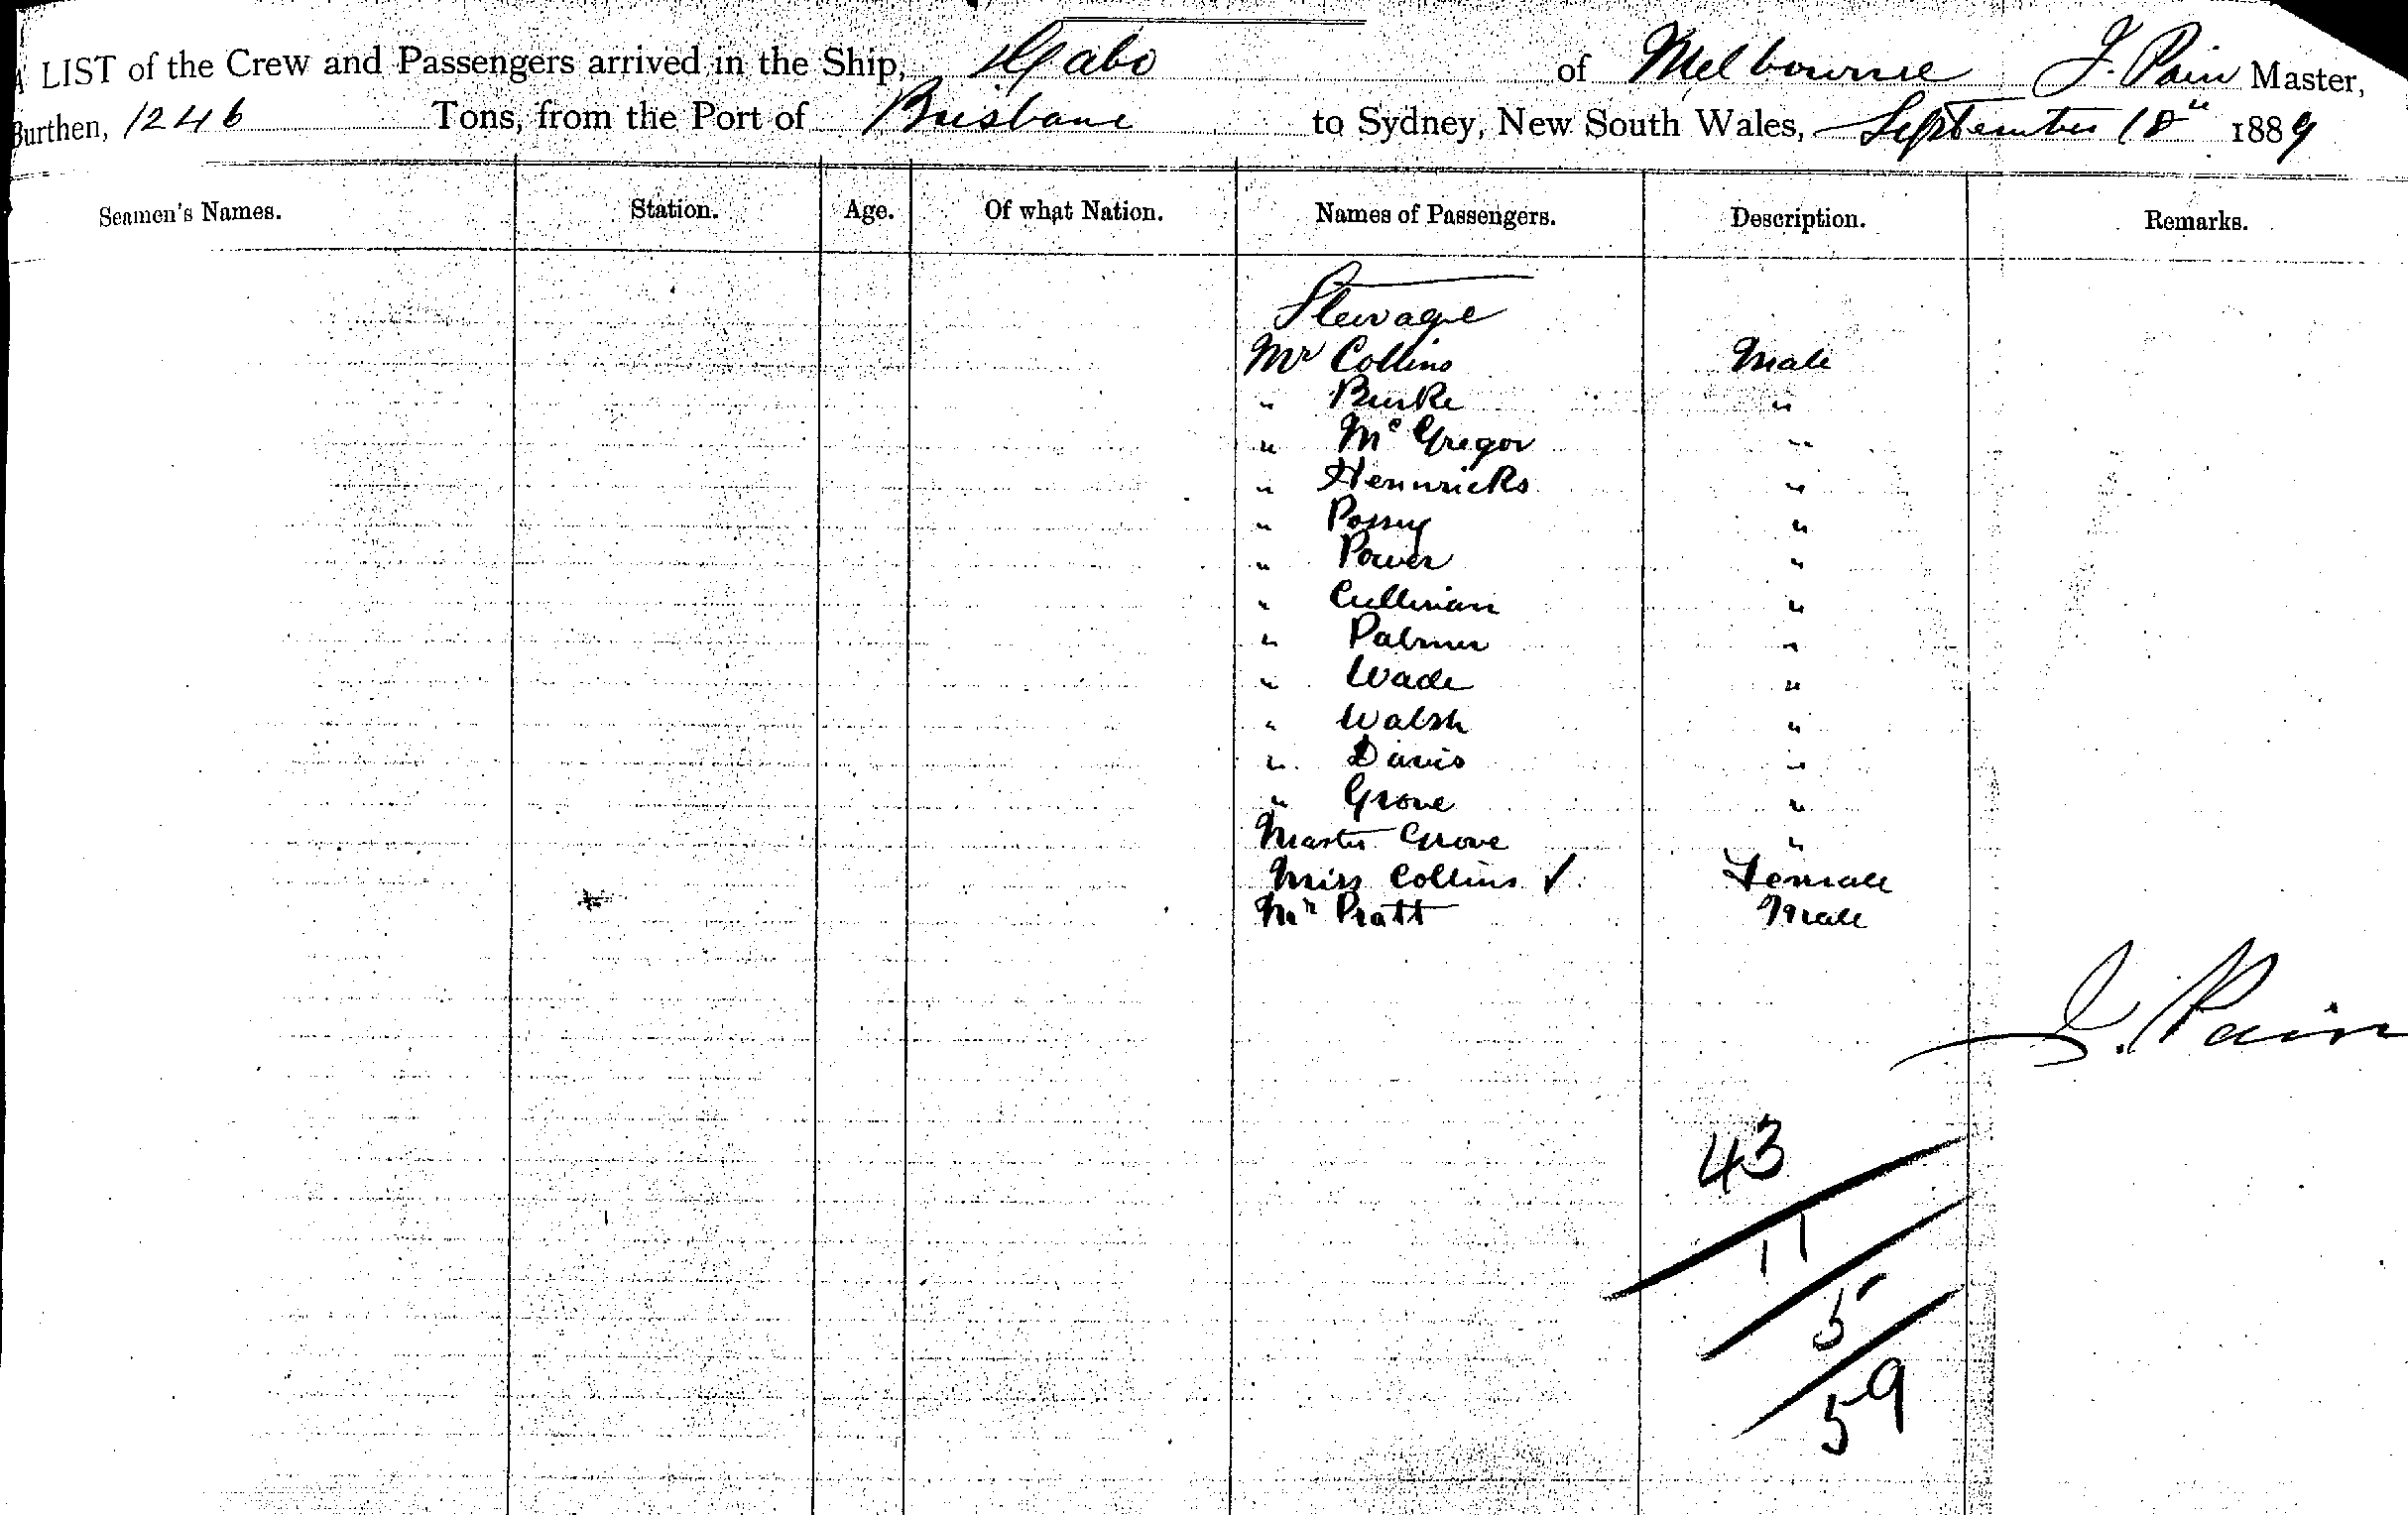 A LIST of the Crew and Passengers arrived in the Ship, Gabo of Melbourne J. Pain Master,
Burthen, 1246 Tons, from the Port of Brisbane to Sydney, New South Wales, September 18th 1889
Seamen's Names. Station. Age. Of what Nation. Names of Passengers. Description. Remarks.
Steerage
Mr Collins Male
" Burke "
" McGregor "
" Hennricks "
" "
" Power "
" Cullinan "
" Palmer "
" Wade "
" Walsh "
" Davis "
" Grove "
Master Grove "
Miss Collins ✓ Female
Mr Pratt Male
J. Pain
43
11
5
59